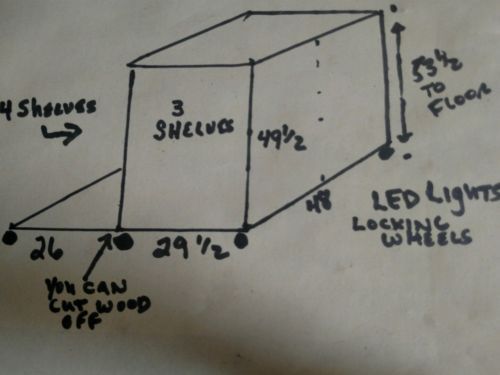 4 SHELVES
3
SHELVES
49 1/2
53 1/2
TO
FLOOR
48
LED LIGHTS
LOCKING
WHEELS
26
29 1/2
YOU CAN
CUT WOOD
OFF